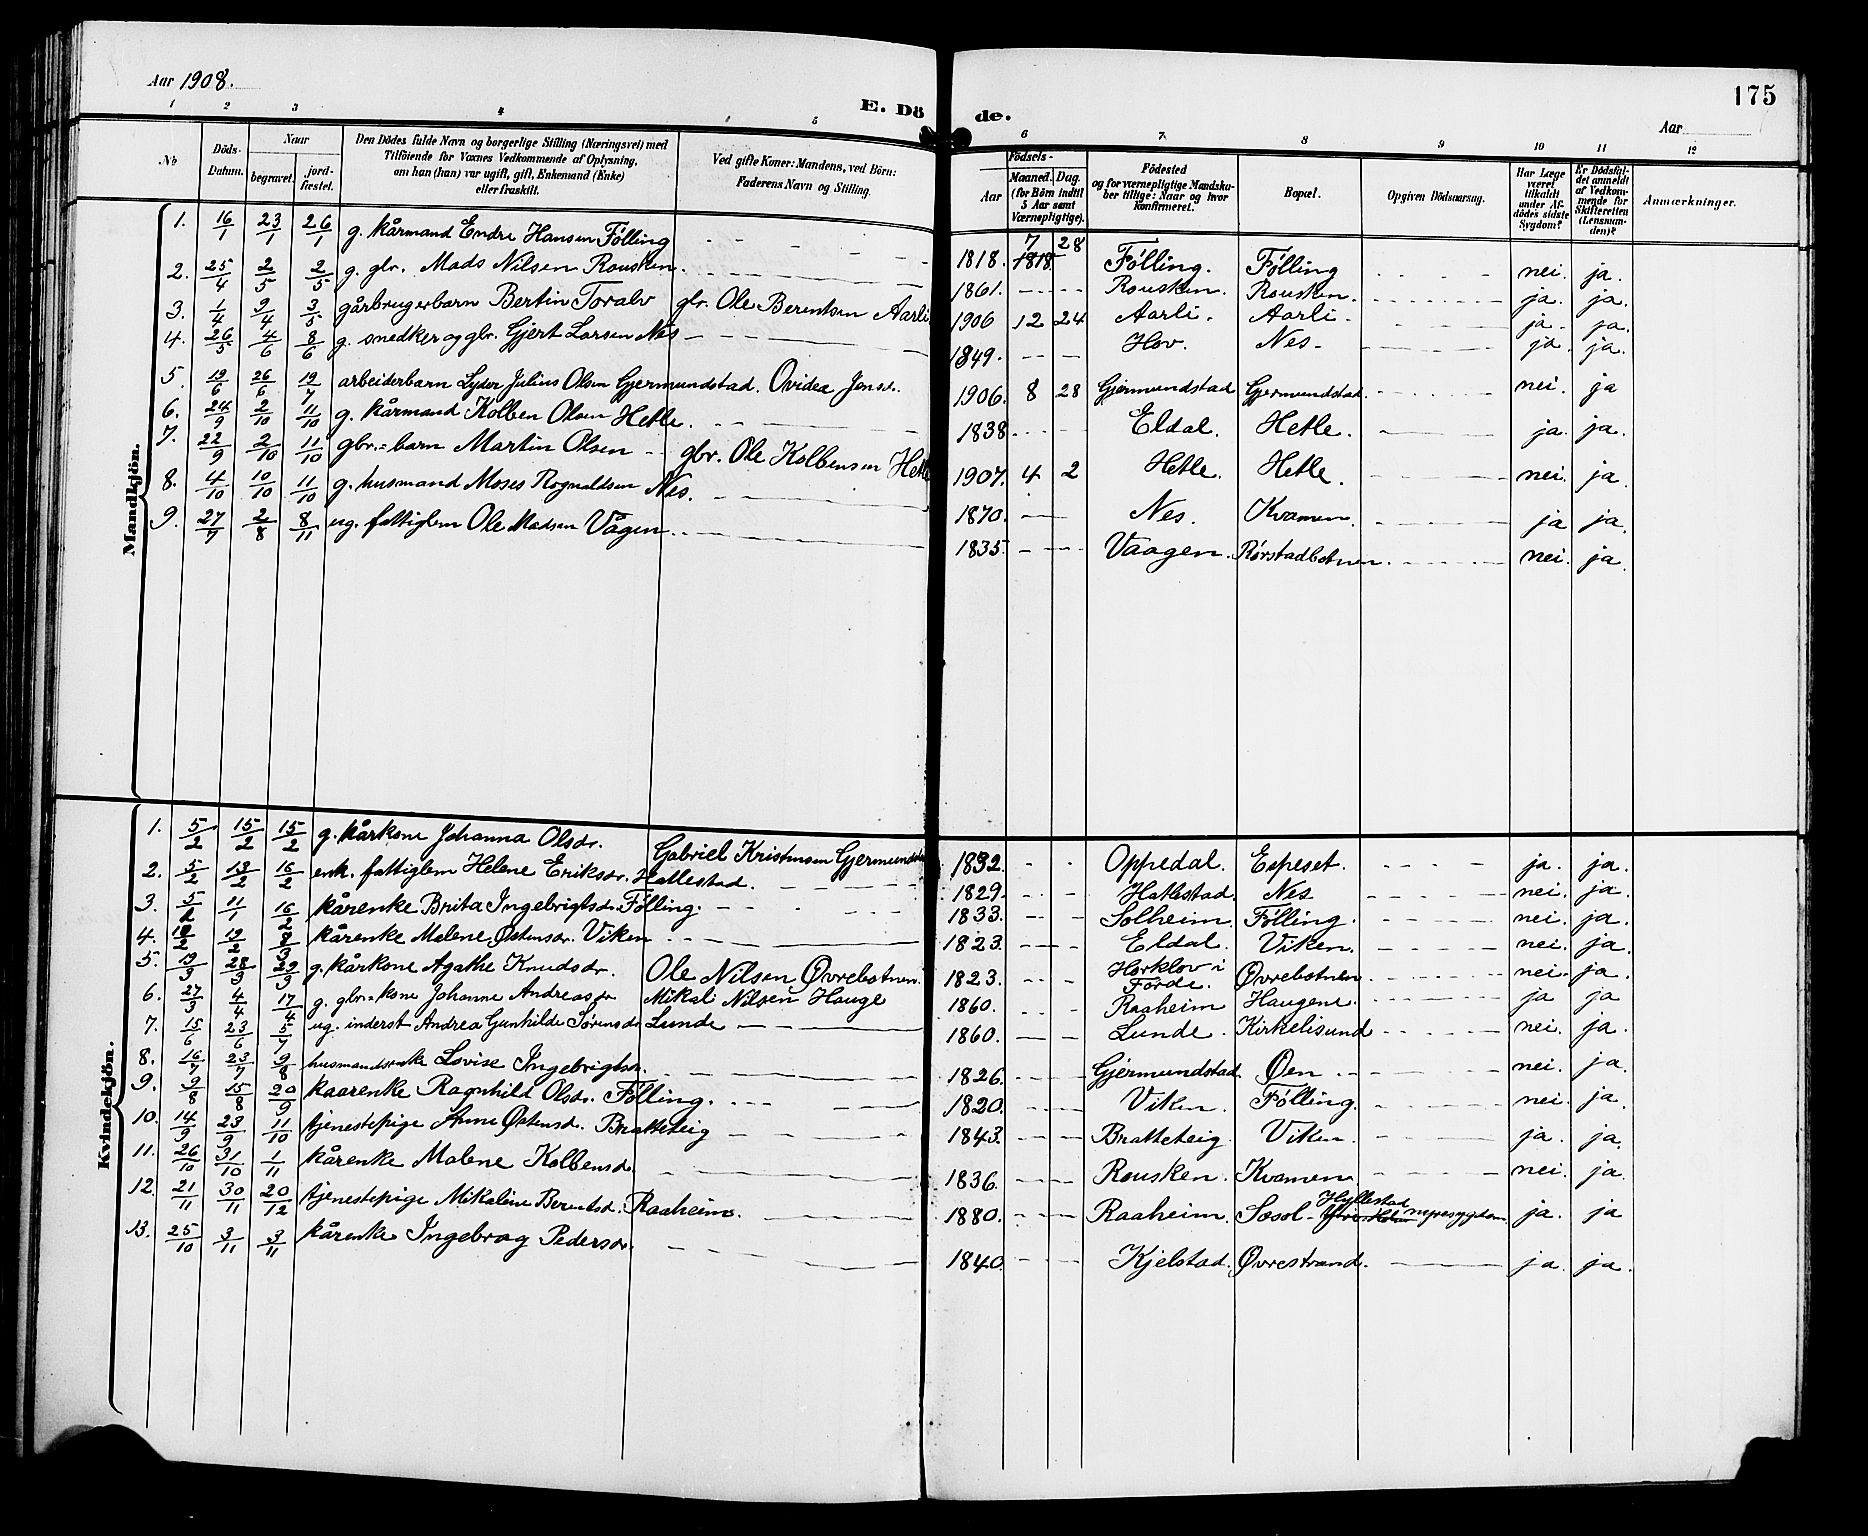 Aar 1908.
E. Dö de.
175
Aar
1 2 3 4 5 6 7. 8 9 10 11 12
No
Döds-Datum.
Naar
begravet.
jord-fæstet.
Den Dödes fulde Navn og borgerlige Stilling (Næringsvei) med
Tilföiende for Voxnes Vedkommende af Oplysning,
om han (hun) var ugift, gift, Enkemand (Enke)
eller fraskilt.
Ved gifte Koner: Mandens, ved Börn:
Faderens Navn og Stilling.
Födsels-
Aar
Maaned. Dag.
(for Börn indtil
5 Aar samt
Værnepligtige).
Födested
og for værnepligtige Mandska-
ber tillige: Naar og hvor
konfirmeret.
Bopæl.
Opgiven Dödsaarsag.
Har Læge
været
tilkaldt
under Af-
dödes sidste
Sygdom?
Er Dödsfal-
det anmeldt
af Vedkom-
mende for
Skifteretten
(Lensman-
den)?
Anmærkninger.
Mandkjön.
1. 16/1 23/1 26/1 g. kårmand Endre Hansen Følling 1818. 7 28 1818 Følling. Følling nei. ja.
2. 25/4 2/5 2/5 g. gbr. Mads Nilsen Rousken. 1861. Rousken. Rousken. ja. ja.
3. 1/4 9/4 3/5 gårbrugerbarn Bertin Toralv gbr. Ole Berentsen Aarli 1906 12 24 Aarli. Aarli. ja. ja.
4. 26/5 4/6 8/6 g. snedker og gbr. Gjert Larsen Nes 1849. Hov. Nes ja. ja.
5. 19/6 26/6 19/7 arbeiderbarn Lyder Julius Olsen Gjermundstad. Ovidea Jensd. 1906. 8 28 Gjermundstad Gjermundstad. nei. ja
6. 24/9 2/10 11/10 g. kårmand Kolben Olsen Hetle. 1838 Eldal. Hetle. ja. ja.
7. 22/9 2/10 11/10 gbr.=barn Martin Olsen gbr. Ole Kolbensen Hetle 1907. 4 2 Hetle Hetle. nei. ja.
8. 4/10 10/10 11/10 g. husmand Moses Rognaldsen Nes. 1870. Nes. Kvamen. ja ja.
9. 27/7 2/8 8/11 ug. fattiglem Ole Madsen Vågen. 1835 Vaagen. Rørstadbotnen. nei. ja.
Kvindekjön.
1. 5/2 15/2 15/2 g. kårkone Johanna Olsdr. Gabriel Kristensen Gjermundstad 1832. Oppedal. Espeset. ja. ja.
2. 5/2 13/2 16/2 enk. fattiglem Helene Eriksdr. Hatlestad. 1829. Hatlestad. Nes nei. ja.
3. 5/1 11/1 16/2 kårenke Brita Ingebrigtsdr. Følling. 1833. Solheim. Følling. nei. ja.
4. 12/2 19/2 8/3 kårenke Malene Østensdr. Viken 1823. Eldal. Viken. nei. ja.
5. 19/3 28/3 29/3 g. kårkone Agathe Knudsdr. Ole Nilsen Øvrebotnen. 1823. Horklov i Førde. Øvrebotnen nei. ja.
6. 27/3 4/4 17/4 g. gbr.=kone Johanne Andreasdr Mikal Nilsen Hauge 1860. Raaheim Haugene. ja ja
7. 15/6 23/6 5/7 ug. inderst Andrea Gunhilde Sørensdr Lunde 1860. Lunde. Kirkelisund nei. ja.
8. 16/7 23/7 9/8 husmandsenke Lovise Ingebrigtsdr. 1826. Gjermundstad. Øen nei. ja.
9. 9/8 15/8 20/9 kaarenke Ragnhild Olsdr. Følling. 1820. Viken. Følling. nei. ja.
10. 14/9 23/9 11/10 tjenestepige Anne Østensd. Bratteteig 1843. Bratteteig Viken. ja. ja.
11. 26/10 31/10 1/11 kårenke Malene Kolbensdr. 1836. Rousken. Kvamen. nei. ja.
12. 21/11 30/11 20/12 tjenestepige Mikaline Berentsd. Raaheim. 1880. Raaheim. Sosol - Hyllestad nyresygdom. ja. ja
13. 25/10 3/11 3/11 kårenke Ingeborg Pedersdr. 1840. Kjelstad. Øvrestrand. ja. ja.